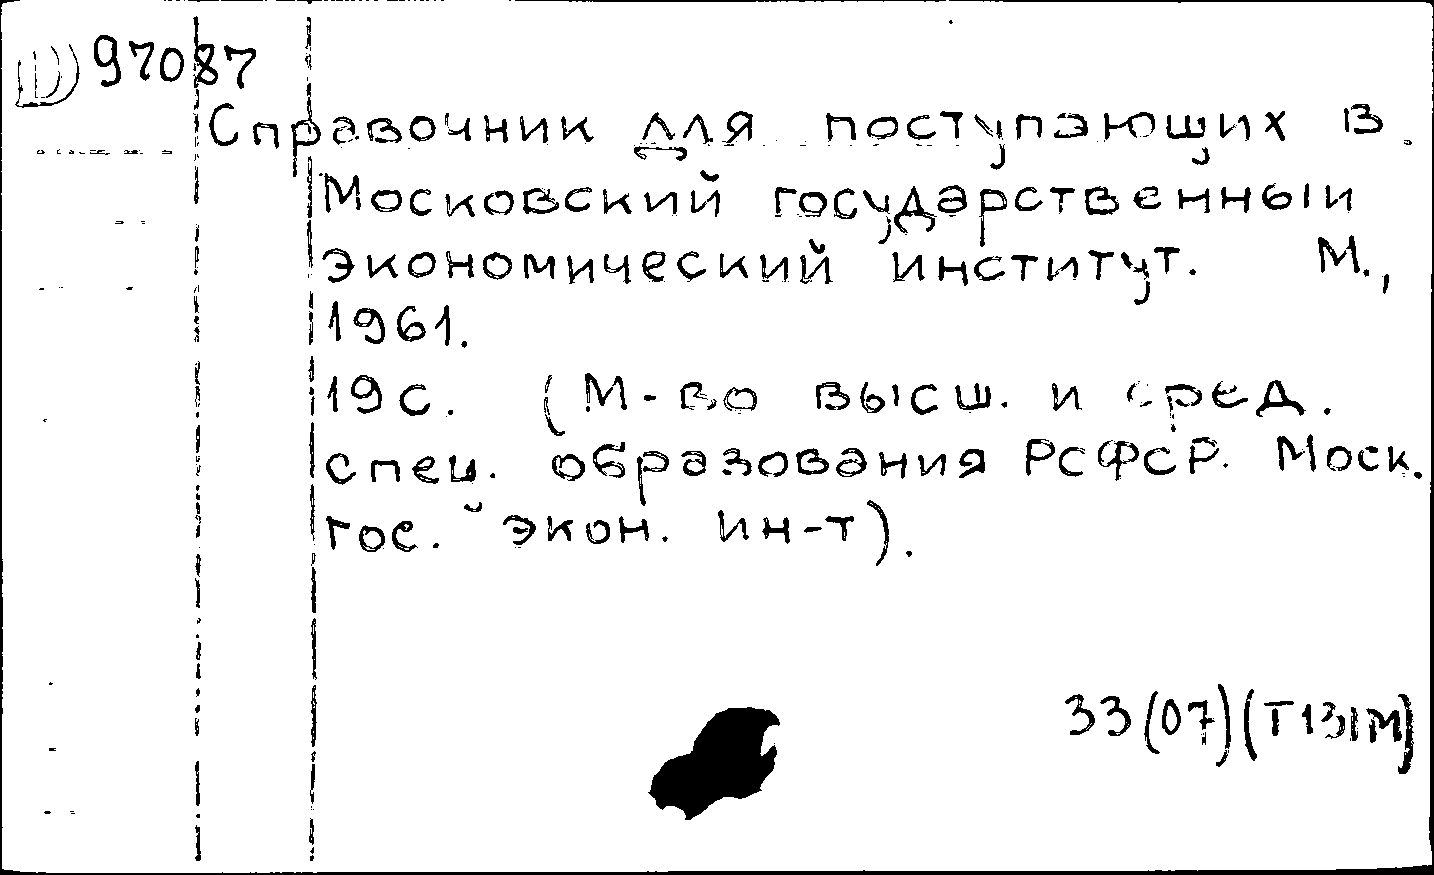 97087
Справочник для поступающих в
Московский государственный
экономический институт. М.,
1961.
19с. (М-во высш. и сред.
спец. образования РСФСР. Моск.
гос. экон. ин-т).
33(07)(Т131М)